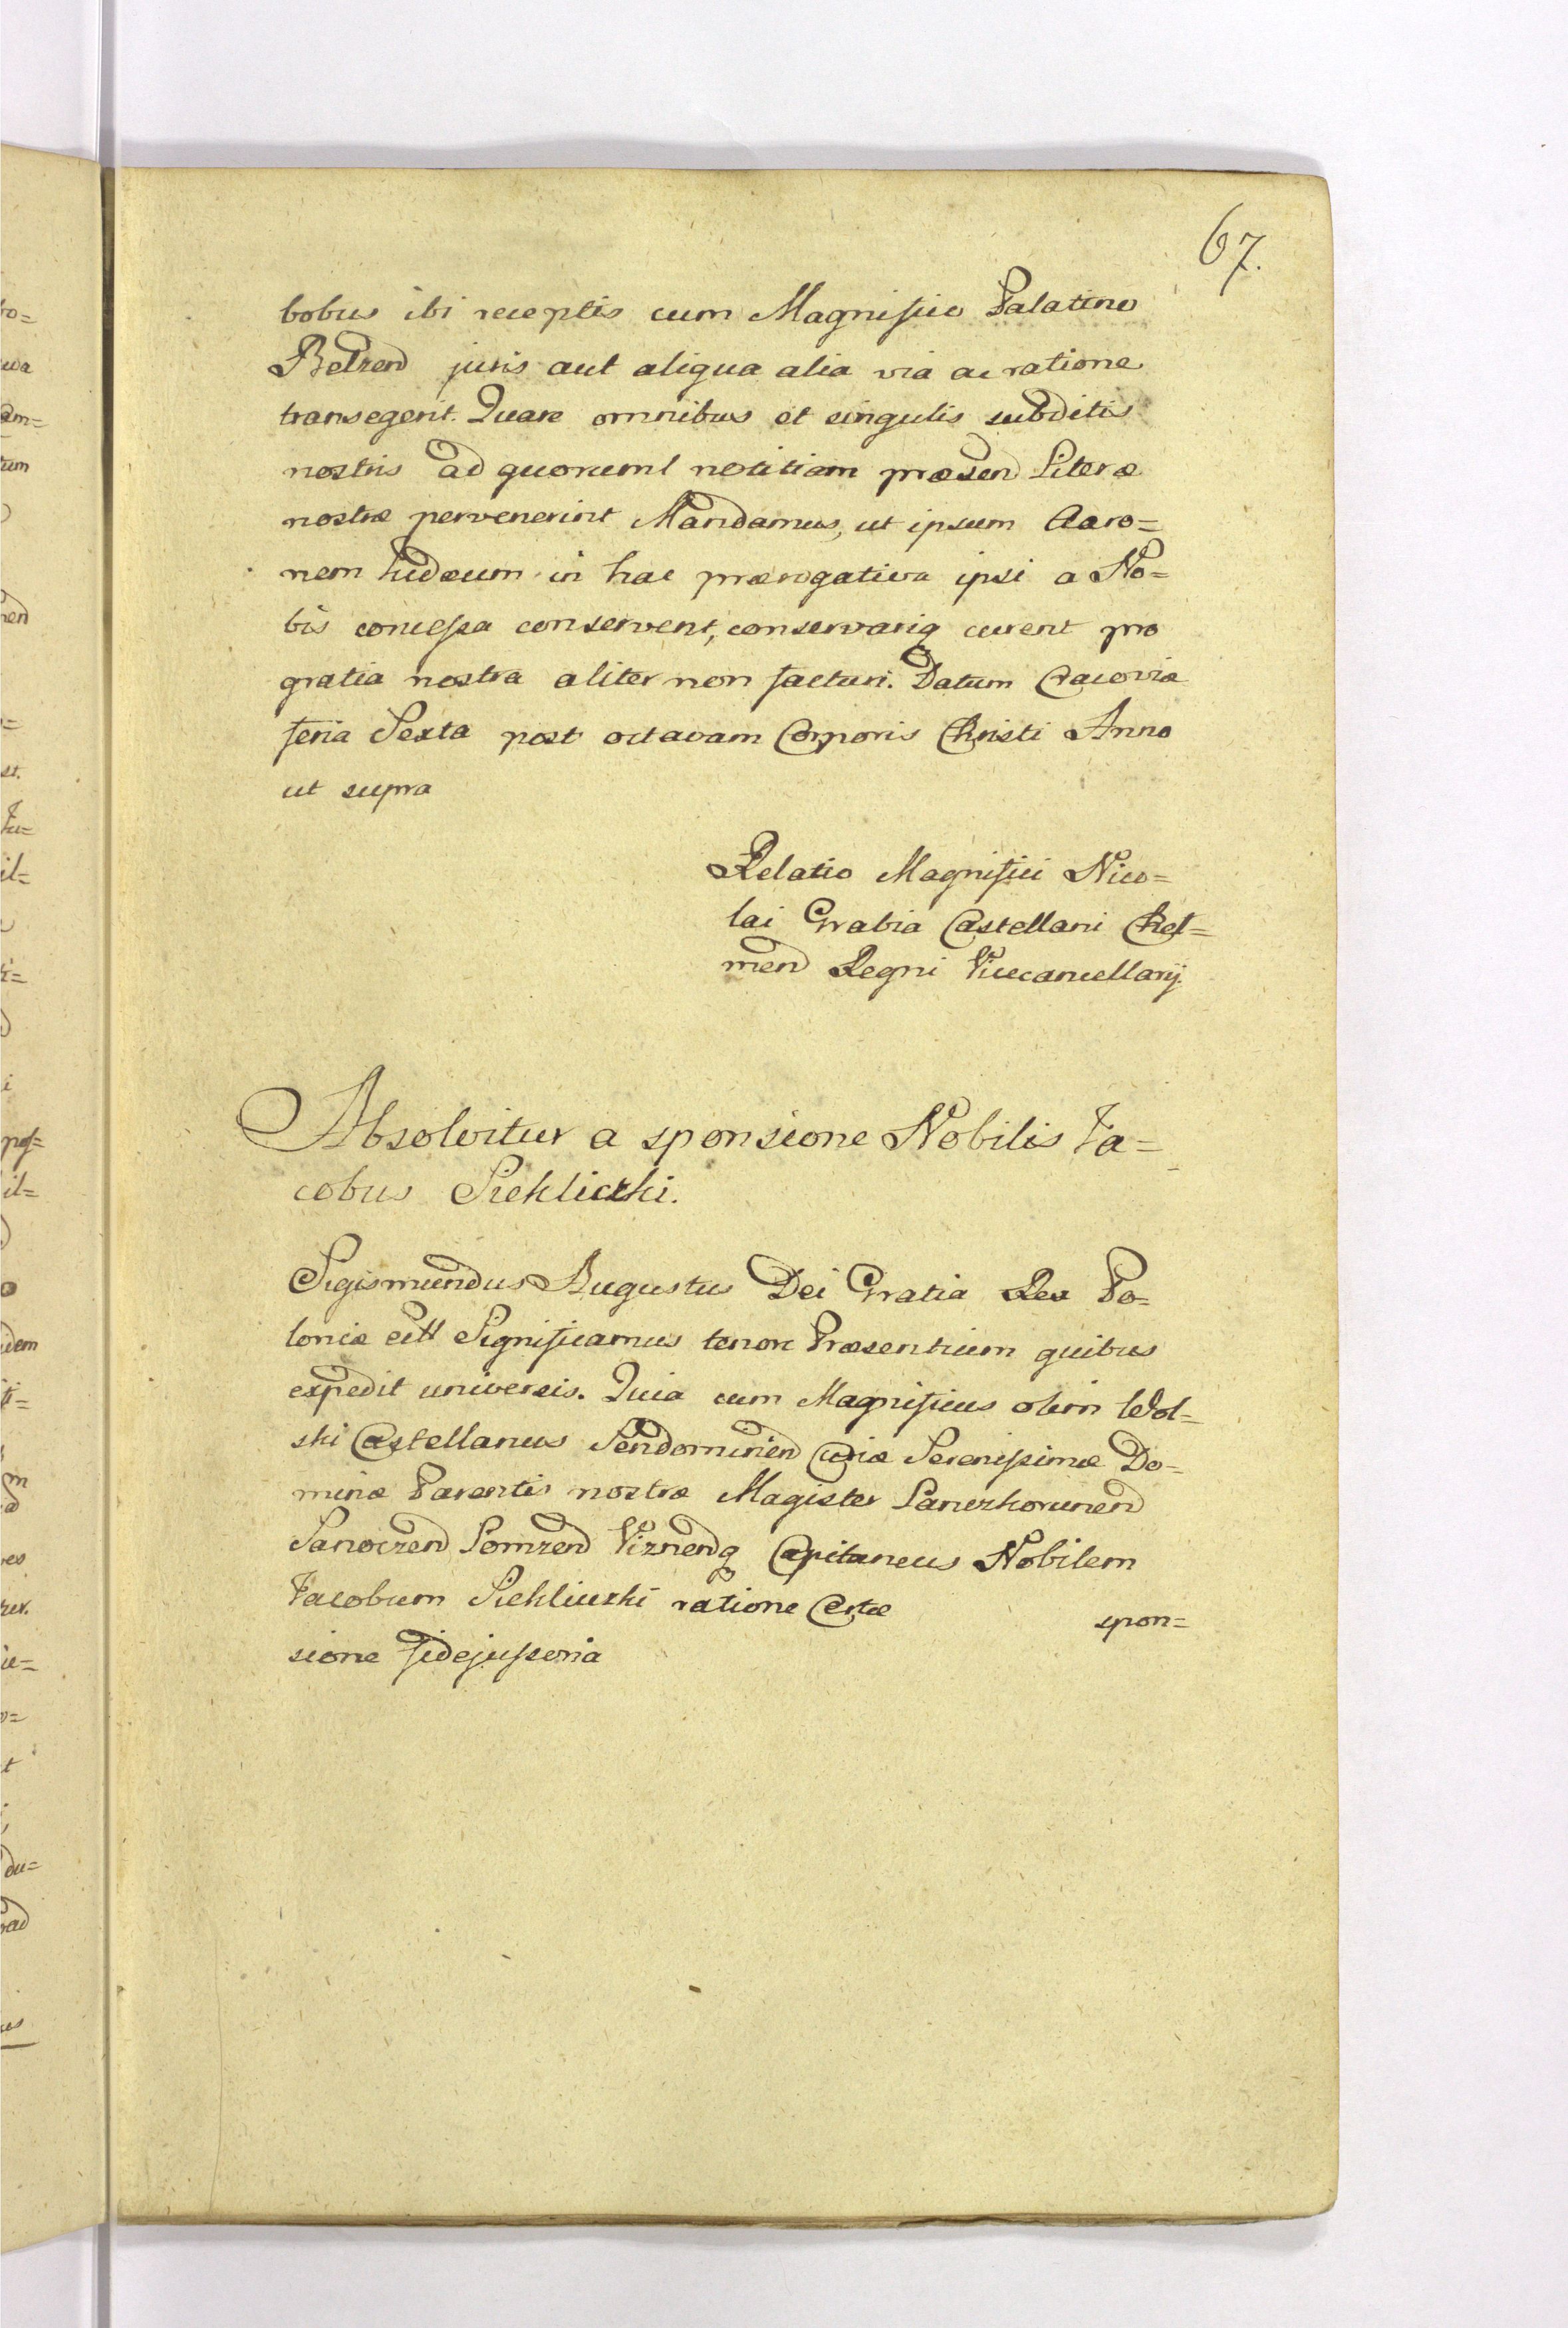 67.
bobus ibi receptis cum Magnifico Palatino
Belzen juris aut aliqua alia via ac ratione
transegerit. Quare omnibus et singulis subditis
nostris ad quorum notitiam præsen Literæ
nostræ pervenerint Mandamus, ut ipsum Aaro=
nem Iudæum in hac prærogativa ipsi a No=
bis concessa conservent, conservariq curent pro
gratia nostra aliter non facturi. Datum Cracoviæ
feria Sexta post octavam Corporis Christi Anno
ut supra
Relatio Magnifici Nico=
lai Grabia Castellani Chel=
men Regni Vicecancellarij.
Absolvitur a sponsione Nobilis Ja=
cobus Siekliczki.
Sigismundus Augustus Dei Gratia Rex Po=
loniæ ett Significamus tenore Præsentium quibus
expedit universis. Quia cum Magnificus olim Wol=
ski Castellanus Sendomirien Curiæ Serenissimæ Do=
minæ Parentis nostræ Magister Lanczkorunen
Sanoczen Lomzen Viznenq Capitaneus Nobilem
Jacobum Siekliczki ratione Certæ spon=
sione fidejussoria